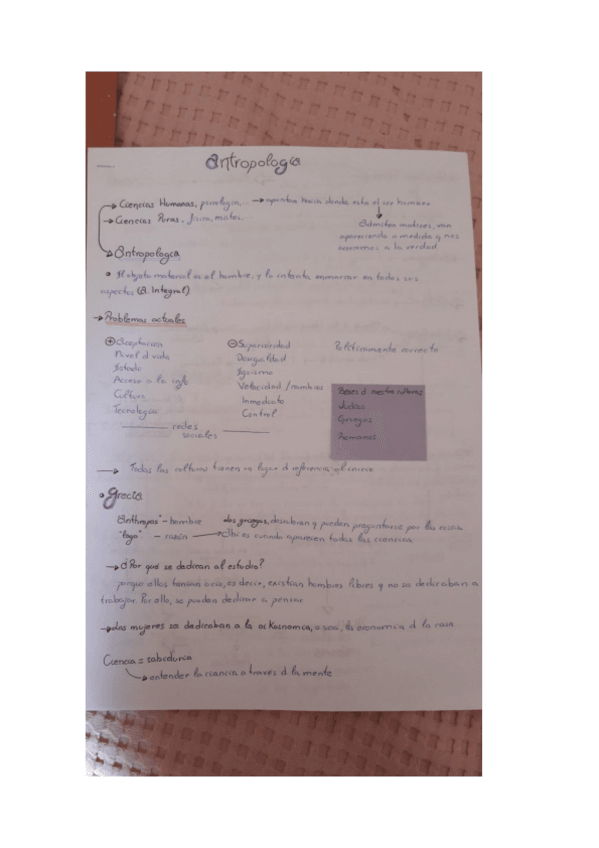 Antropología
→ Ciencias Humanas, psicología. → apuntan hacia donde esta el ser humano
→ Ciencias Puras, física, mates.
Admiten matices, van
apareciendo a medida q nos
acercamos a la verdad
→ Antropología
• El objeto material es el hombre, y lo intenta enmarcar en todos sus
aspectos (A. Integral)
→ Problemas actuales
⊕ Aceptación ⊖ Superioridad Políticamente correcto
Nivel d vida Desigualdad
Estado Egoísmo
Acceso a la info Velocidad / cambios
Cultura Inmediato
Tecnología Control
Bases d nuestra cultura
Judios
Griegos
Romanos
redes
sociales
→ Todas las culturas tienen un lugar d referencia
• Grecia
Anthropos" - hombre los griegos, descubren q pueden preguntarse por las cosas
"logo" - razón → Ahi es cuando aparecen todas las ciencias
→ ¿Por qué se dedican al estudio?
porque ellos tenían ocio, es decir, existían hombres libres q no se dedicaban a
trabajar. Por ello, se pueden dedicar a pensar
→ Las mujeres se dedicaban a la oikosnomia, o sea, la economia d la casa
Ciencia = sabiduria
→ entender la ciencia a traves d la mente